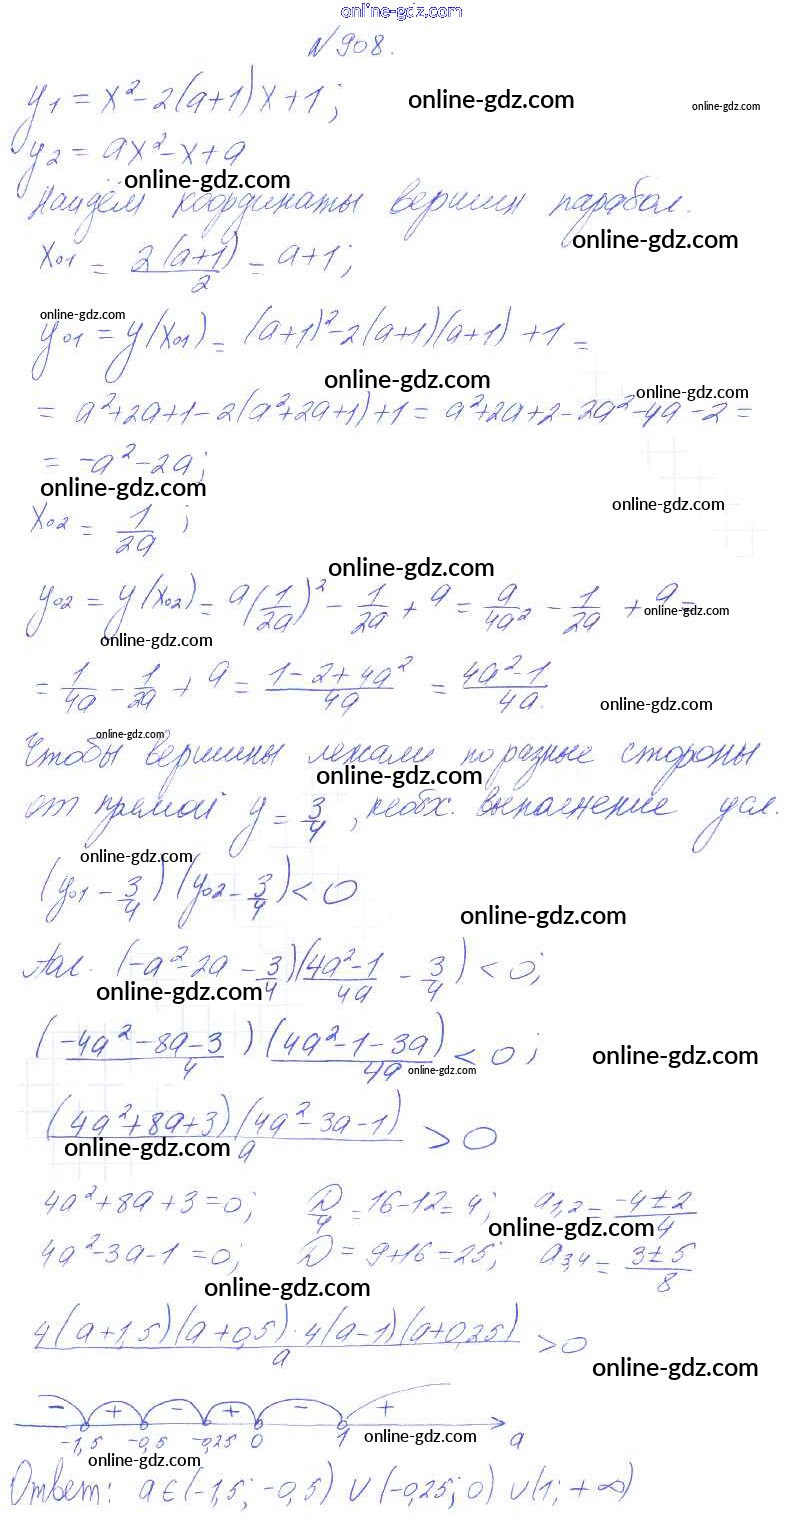 online-gdz.com
№908.
y₁ = x² - 2(a+1)x + 1;
online-gdz.com
online-gdz.com
y₂ = ax² - x + a
online-gdz.com
Найдём координаты вершин парабол.
online-gdz.com
x₀₁ = 2(a+1)/2 = a+1;
online-gdz.com
y₀₁ = y(x₀₁) = (a+1)² - 2(a+1)(a+1) + 1 =
online-gdz.com
online-gdz.com
= a²+2a+1-2(a²+2a+1)+1 = a²+2a+2-2a²-4a-2 =
= -a²-2a;
online-gdz.com
online-gdz.com
x₀₂ = 1/2a;
online-gdz.com
y₀₂ = y(x₀₂) = a(1/2a)² - 1/2a + a = a/4a² - 1/2a + a =
online-gdz.com
online-gdz.com
= 1/4a - 1/2a + a = 1-2+4a²/4a = 4a²-1/4a.
online-gdz.com
online-gdz.com
Чтобы вершины лежали по разные стороны
online-gdz.com
от прямой y = 3/4, необх. выполнение усл.
online-gdz.com
(y₀₁ - 3/4)(y₀₂ - 3/4) < 0
online-gdz.com
(-a²-2a - 3/4)(4a²-1/4a - 3/4) < 0;
online-gdz.com
(-4a²-8a-3/4)(4a²-1-3a/4a) < 0;
online-gdz.com
online-gdz.com
(4a²+8a+3)(4a²-3a-1)/a > 0
online-gdz.com
4a²+8a+3=0; D/4 = 16-12 = 4; a₁,₂ = -4±2/4
online-gdz.com
4a²-3a-1=0; D = 9+16 = 25; a₃,₄ = 3±5/8
online-gdz.com
4(a+1,5)(a+0,5)·4(a-1)(a+0,25)/a > 0
online-gdz.com
- + - + - +
-1,5 -0,5 -0,25 0 1 a
online-gdz.com
online-gdz.com
Ответ: a∈(-1,5; -0,5) ∪ (-0,25; 0) ∪ (1; +∞)